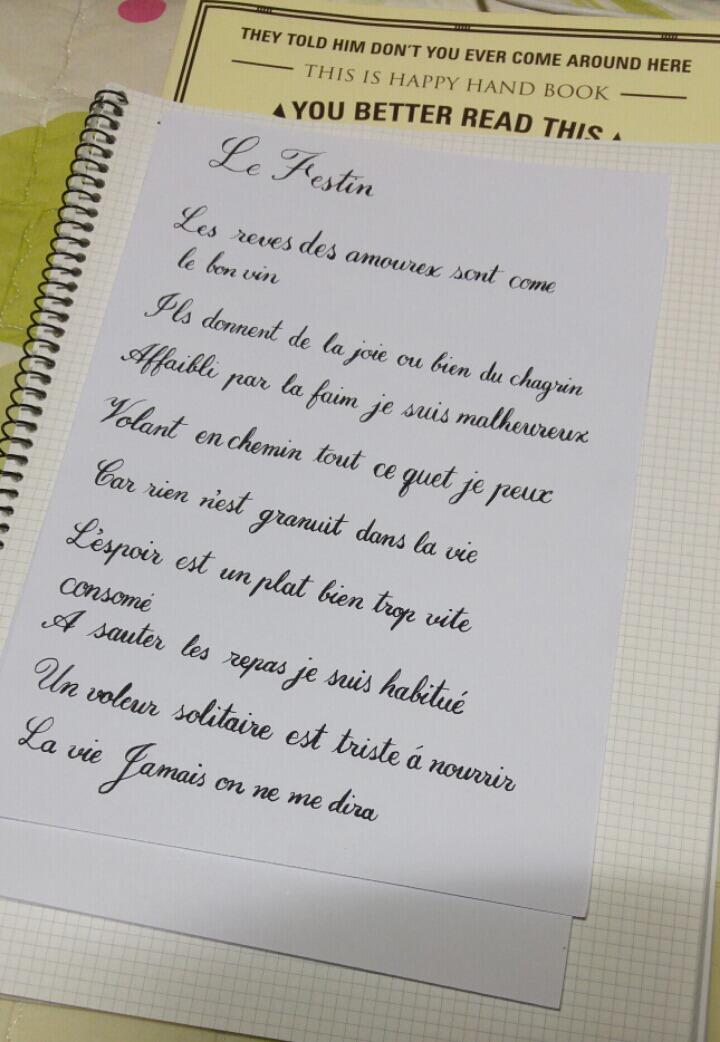 THEY TOLD HIM DON'T YOU EVER COME AROUND HERE
THIS IS HAPPY HAND BOOK
YOU BETTER READ THIS
Le Festin
Les reves des amourex sont come
le bon vin
Ils donnent de la joie ou bien du chagrin
Affaibli par la faim je suis malheureux
Volant en chemin tout ce quet je peux
Car rien n'est granuit dans la vie
L'espoir est un plat bien trop vite
consomé
A sauter les repas je suis habitué
Un voleur solitaire est triste á nourrir
La vie Jamais on ne me dira